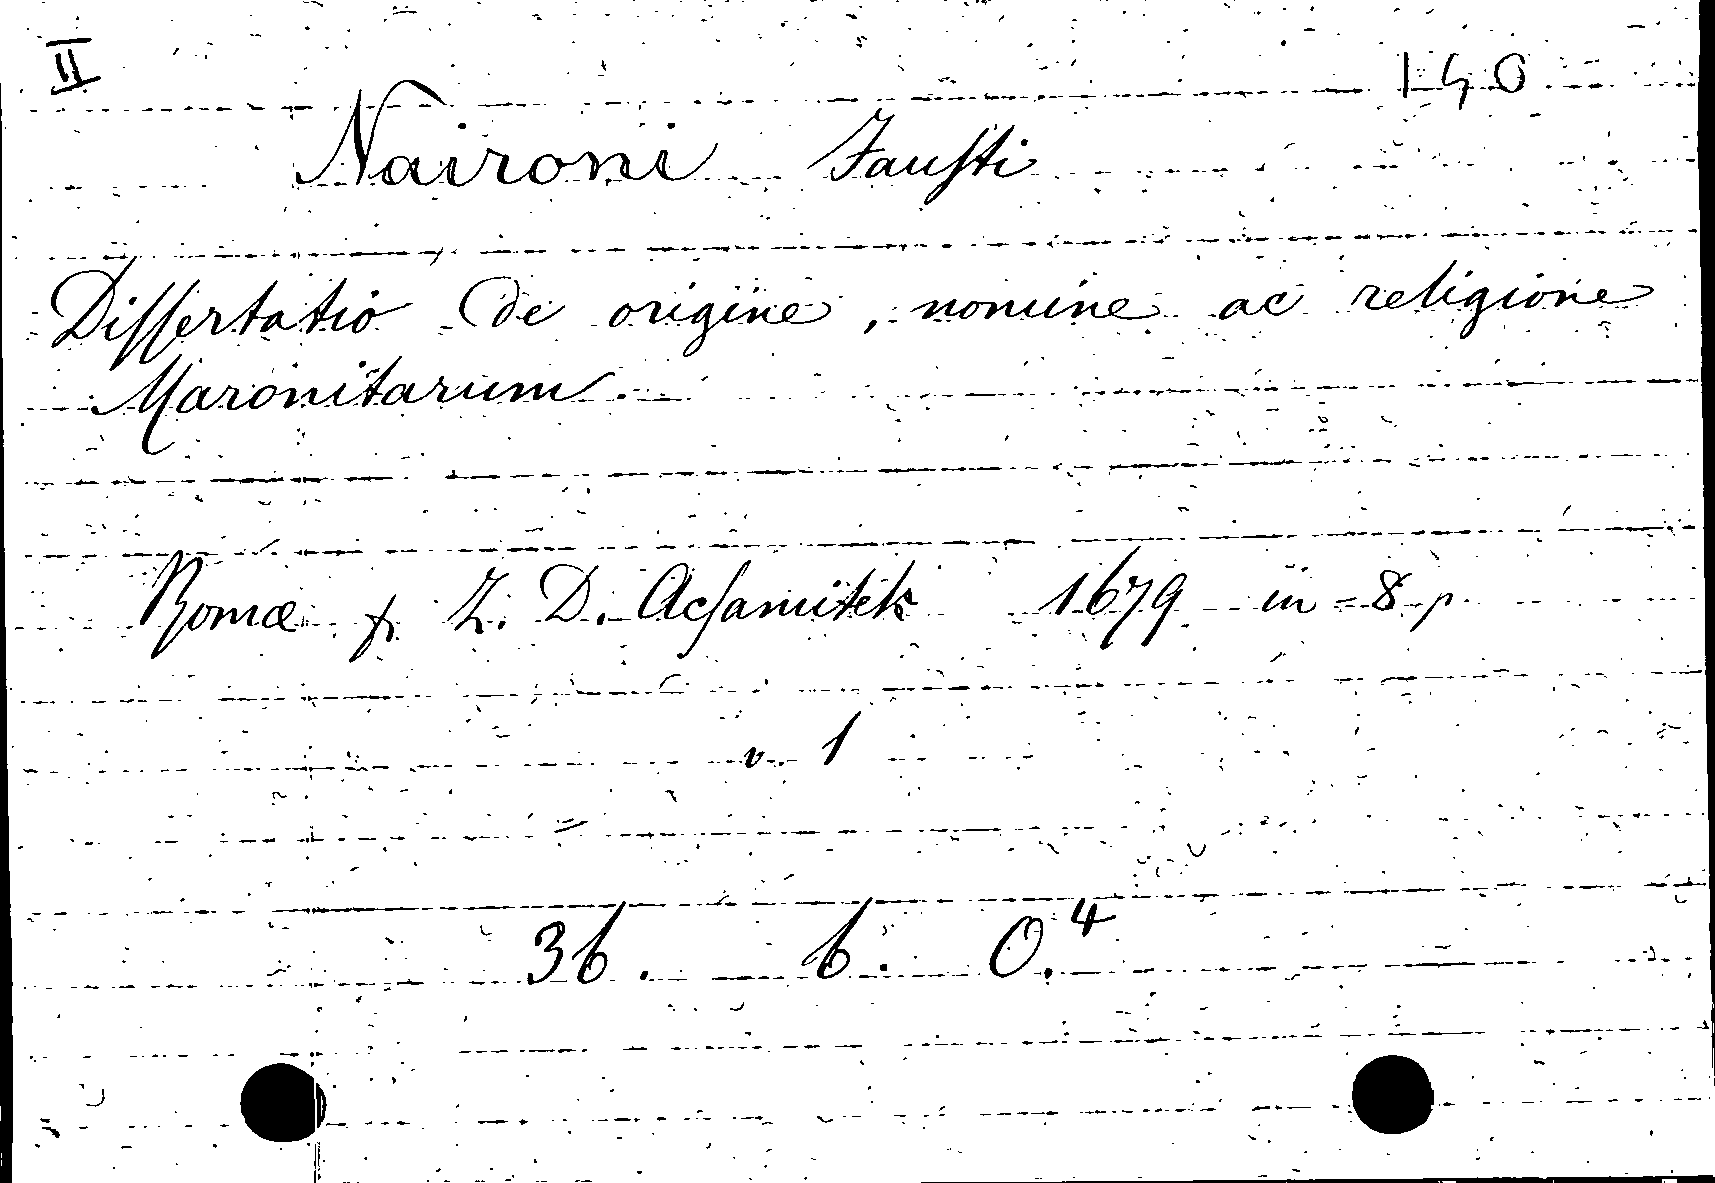 II 140
Naironi Fausti
Dissertatio de origine, nomine ac religione
Maronitarum
Romæ f. Z. D. Acsamitek 1679 in-8 p.
v. 1
36. b. O.4